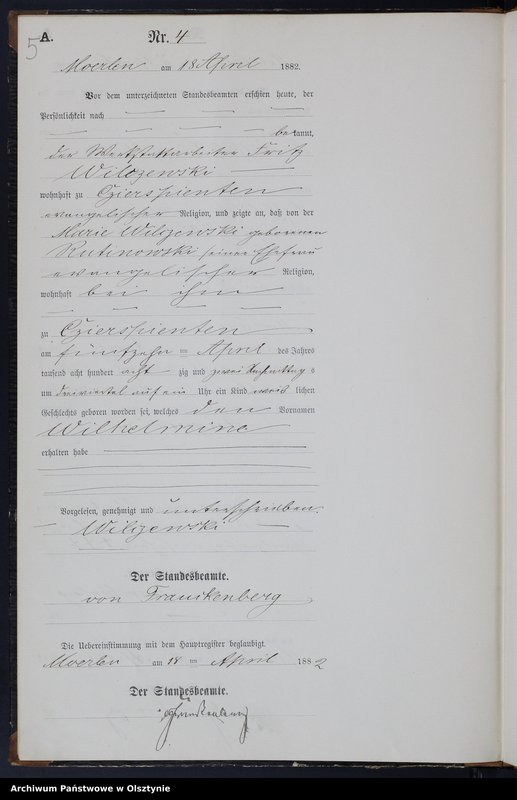 5
A.
Nr. 4
Moerlen am 18 April 1882.
Vor dem unterzeichneten Standesbeamten erschien heute, der
Persönlichkeit nach
bekannt,
der Werkstattarbeiter Fritz
Wilczewski
wohnhaft zu Czierspienten
evangelischer Religion, und zeigte an, daß von der
Marie Wilczewski geborenen
Rutinowski seiner Ehefrau
evangelischer Religion,
wohnhaft bei ihm
zu Czierspienten
am fünfzehn ten April des Jahres
tausend acht hundert acht zig und zwei Nachmittags
um dreiviertel auf ein Uhr ein Kind weib lichen
Geschlechts geboren worden sei, welches den Vornamen
Wilhelmine
erhalten habe
Vorgelesen, genehmigt und unterschrieben.
Wilczewski
Der Standesbeamte.
von Franckenberg
Die Uebereinstimmung mit dem Hauptregister beglaubigt.
Moerlen am 18 ten April 1882
Der Standesbeamte.
Archiwum Państwowe w Olsztynie